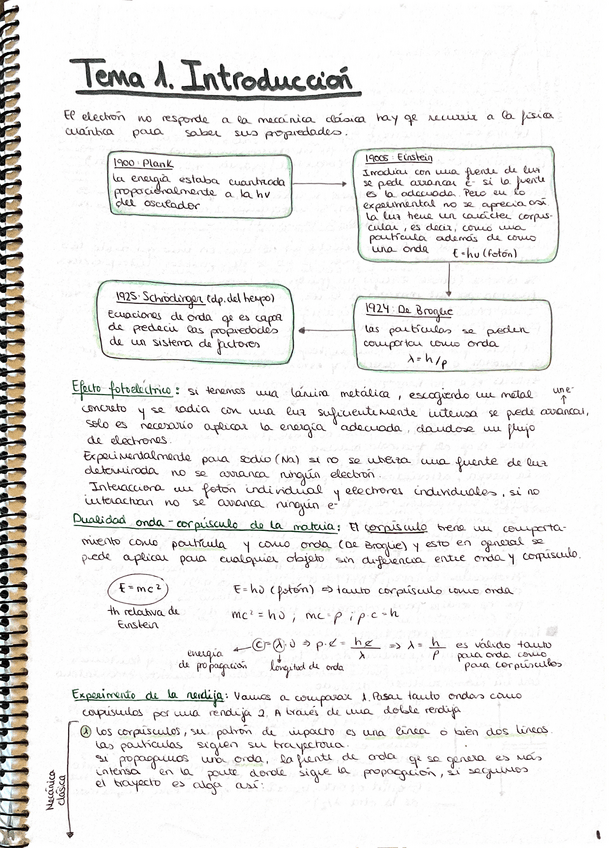 Tema 1. Introducción
El electrón no responde a la mecánica clásica hay qe recurrir a la física
cuántica para saber sus propiedades.
1900 · Plank
la energía estaba cuantizada
proporcionalmente a la hν
del oscilador
1905 · Einstein
Irradiar con una fuente de luz
se pede arrancar e- si la fuente
es la adecuada. Pero en lo
experimental no se aprecia así
La luz tiene un carácter corpus-
cular, es decir, como una
partícula además de como
una onda E=hν (fotón)
1925 · Schrödinger (dp. del tiempo)
Ecuaciones de onda qe es capaz
de predecir las propiedades
de un sistema de factores
1924 · De Broglie
las partículas se peden
comportar como onda
λ = h/p
Efecto fotoeléctrico: si tenemos una lámina metálica, escogiendo un metal
concreto y se radia con una luz suficientemente intensa se pede arrancar,
une-
solo es necesario aplicar la energía adecuada, dándose un flujo
de electrones.
Experimentalmente para sodio (Na) si no se utiliza una fuente de luz
determinada no se arranca ningún electrón.
Interacciona un fotón individual y electrones individuales, si no
interactúan no se arranca ningún e-
Dualidad onda-corpúsculo de la materia: El corpúsculo tiene un comporta-
miento como partícula y como onda (De Broglie) y esto en general se
pede aplicar para cualquier objeto sin diferencia entre onda y corpúsculo.
E=mc²
th relativa de
Einstein
E=hν (fotón) ⇒ tanto corpúsculo como onda
mc² = hν ; mc = p ; p·c = h
c = λ·ν ⇒ p·c = hc/λ ⇒ λ = h/p es válido tanto
para onda como
para corpúsculos
energía
de propagación
longitud de onda
Experimento de la rendija: Vamos a comparar 1. Pasar tanto ondas como
corpúsculos por una rendija 2. A través de una doble rendija
Mecánica
clásica
① los corpúsculos, su patrón de impacto es una línea o bien dos líneas.
las partículas siguen su trayectoria.
si propagamos una onda, la frente de onda qe se genera es más
intensa en la parte donde sigue la propagación, si seguimos
el trayecto es algo así:
1